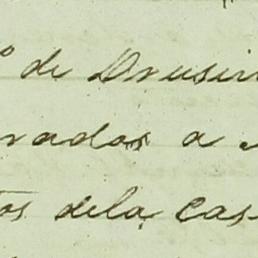 º de Drusin
rados a
tos dela cas